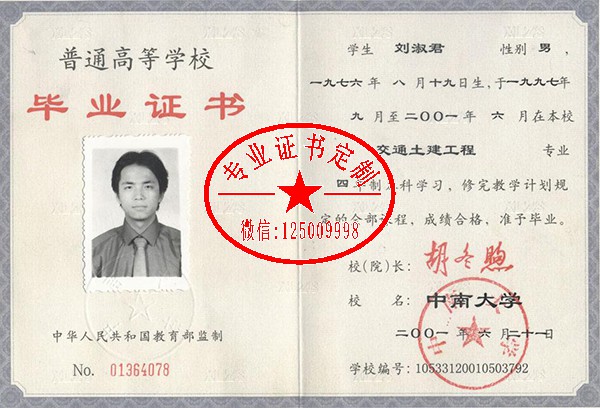 普通高等学校
毕业证书
中华人民共和国教育部监制
No. 01364078
学生 刘淑君 性别 男，
一九七六年 八 月 十九日生，于一九九七年
九 月至二〇〇一年 六 月在本校
交通土建工程 专业
四年制本科学习，修完教学计划规
定的全部课程，成绩合格，准予毕业。
校(院)长：胡冬煦
校 名：中南大学
二〇〇一年 六 月二十一日
学校编号：10533120010503792
专业证书定制
微信:125009998